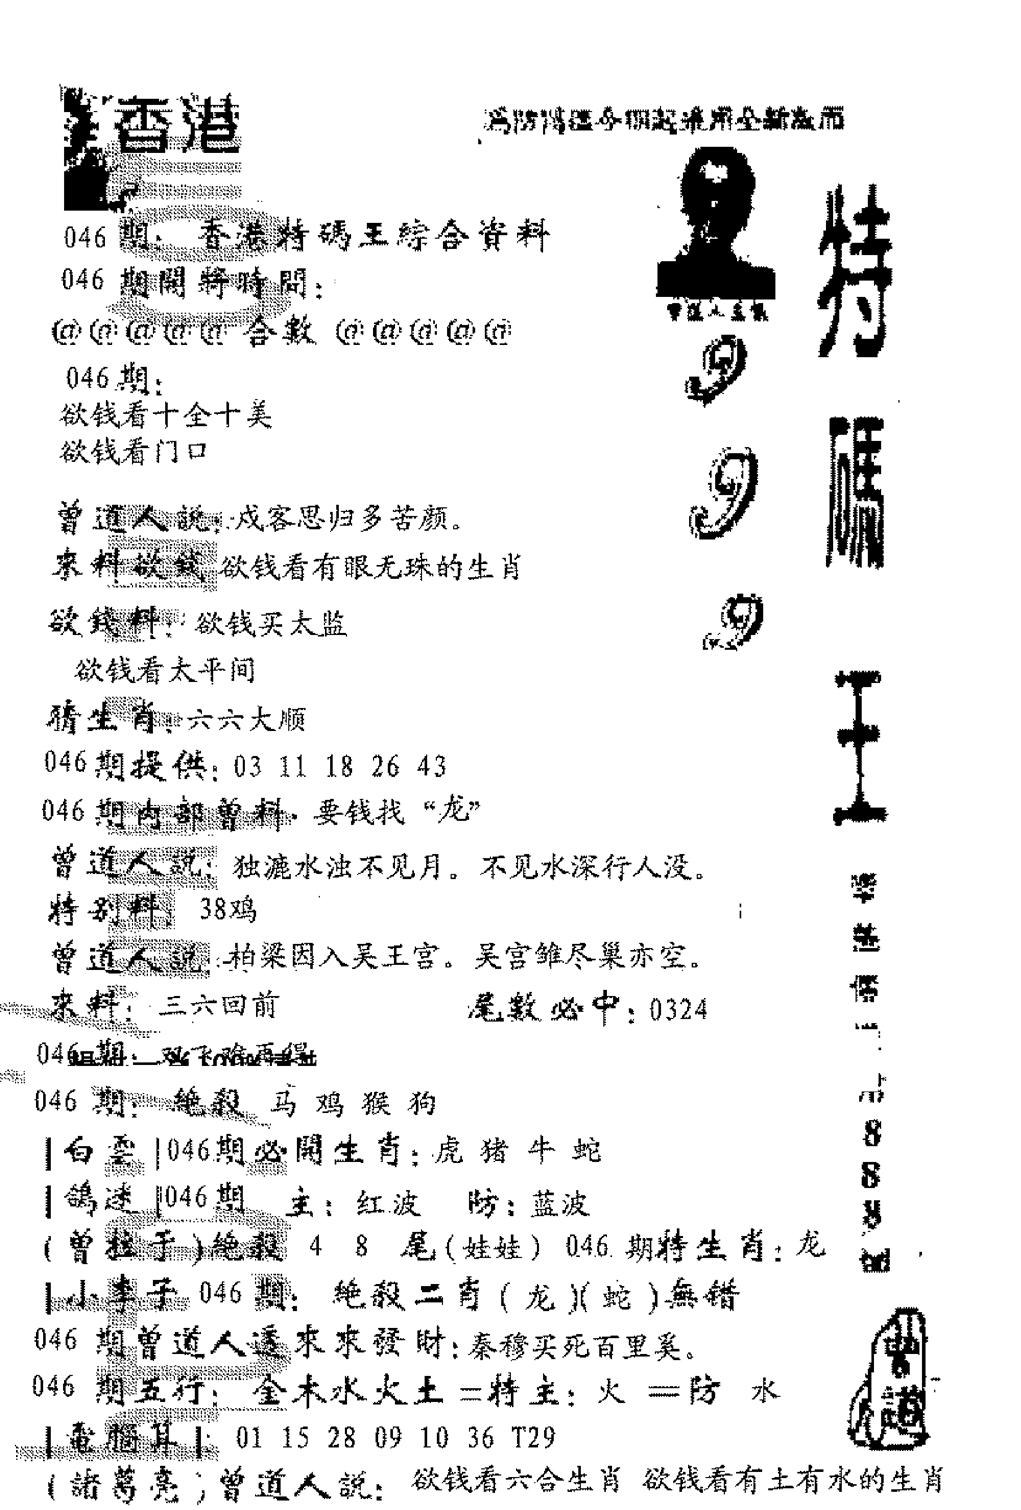 香港
爲防濫今期起采用全新版面
046 期: 香港特碼王綜合資料
046 期開獎時間:
@@@@@ 合數 @@@@@
046 期:
欲钱看十全十美
欲钱看门口
曾道人説: 戍客思归多苦颜。
來料欲錢 欲钱看有眼无珠的生肖
欲錢料: 欲钱买太监
欲钱看太平间
猜生肖: 六六大顺
046 期提供: 03 11 18 26 43
046 期内部曾料: 要钱找 “龙”
曾道人説: 独漉水浊不见月。不见水深行人没。
特别料: 38鸡
曾道人説: 柏梁因入吴王宫。吴宫雏尽巢亦空。
來料: 三六回前
尾數必中: 0324
046 期: 双飞难再得
046 期: 絶殺 马 鸡 猴 狗
|白雲|046期必開生肖: 虎 猪 牛 蛇
|鴿迷|046期 主: 红波 防: 蓝波
(曾拉手)絶殺 4 8 尾(娃娃) 046 期特生肖: 龙
|小李子 046 期: 絶殺二肖 (龙)(蛇)無错
046 期曾道人透來來發財: 秦穆买死百里奚。
046 期五行: 金木水火土=特主: 火 =防 水
|電腦算|: 01 15 28 09 10 36 T29
(諸葛亮)曾道人説: 欲钱看六合生肖 欲钱看有土有水的生肖
曾道人
9
9
9
特
碼
王
8
8
8
曾道